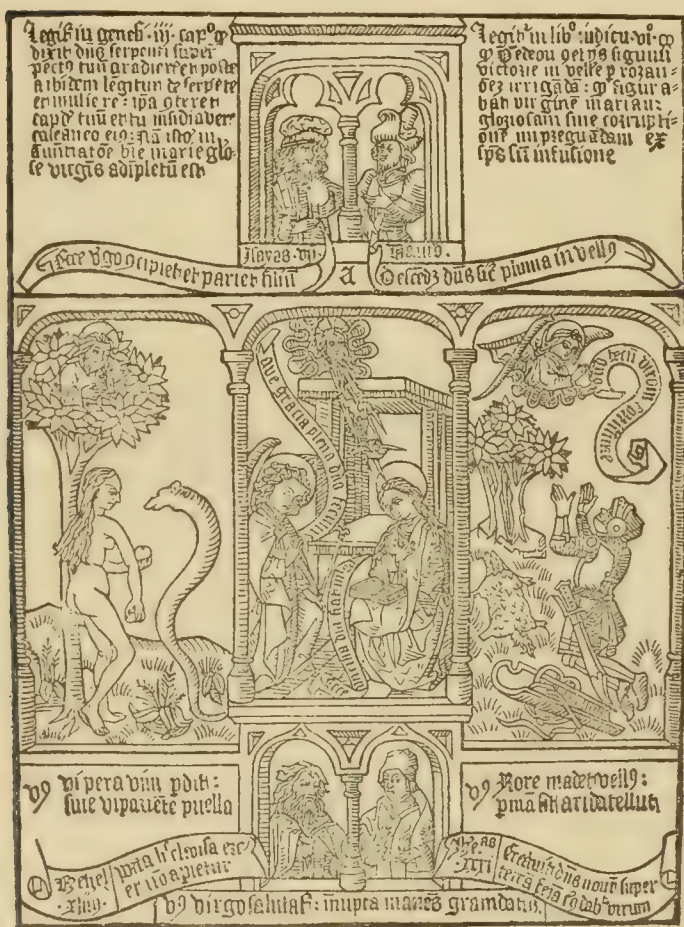 Legit᷑ in genesi · iij · cap᷒o q
dixit dn̄s serpenti super
pectꝰ tuū gradieris et postea
ibidem legitur de serpēte
et muliere : ipā ɔteret
capd᷒ tuū et tu insidiaber
calcaneo eiꝰ : nā istd᷒ in
ānūtiatōe bt̄e marie glo-
se virgīs adīpletū est
Legit᷑ in lib᷒o iudicū · vi · cͦ
ꝙ Gedeon petijt signum
victorie in vellere ꝓ
irrigādū : ꝙ figura-
bat virginē mariam
gloriosam sine corrupti-
one impregnādam ex
sp̄s sc̄i infusione
Ysayas · vii
Dauid
Ecce v̊go ɔcipiet et pariet filiū
a
Descēdet dn̄s sic̄ pluuia in vellꝰ
Aue gracia plena dn̄s tecum
Dn̄s tecū virorū fortissime
Vꝰ Vipera vim ꝑdit :
sine vi pariēte puella
Vꝰ Rore madet vellꝰ :
arida tellus
Ezechiel
· xliiij ·
Porta h᷒ clausa erit
et nō apietur
Ieᵃˢ
XXXI
Creauit dn̄s nouū super
terrā virum
Vꝰ Virgo salutat᷑ : innupta manēs grauidatur